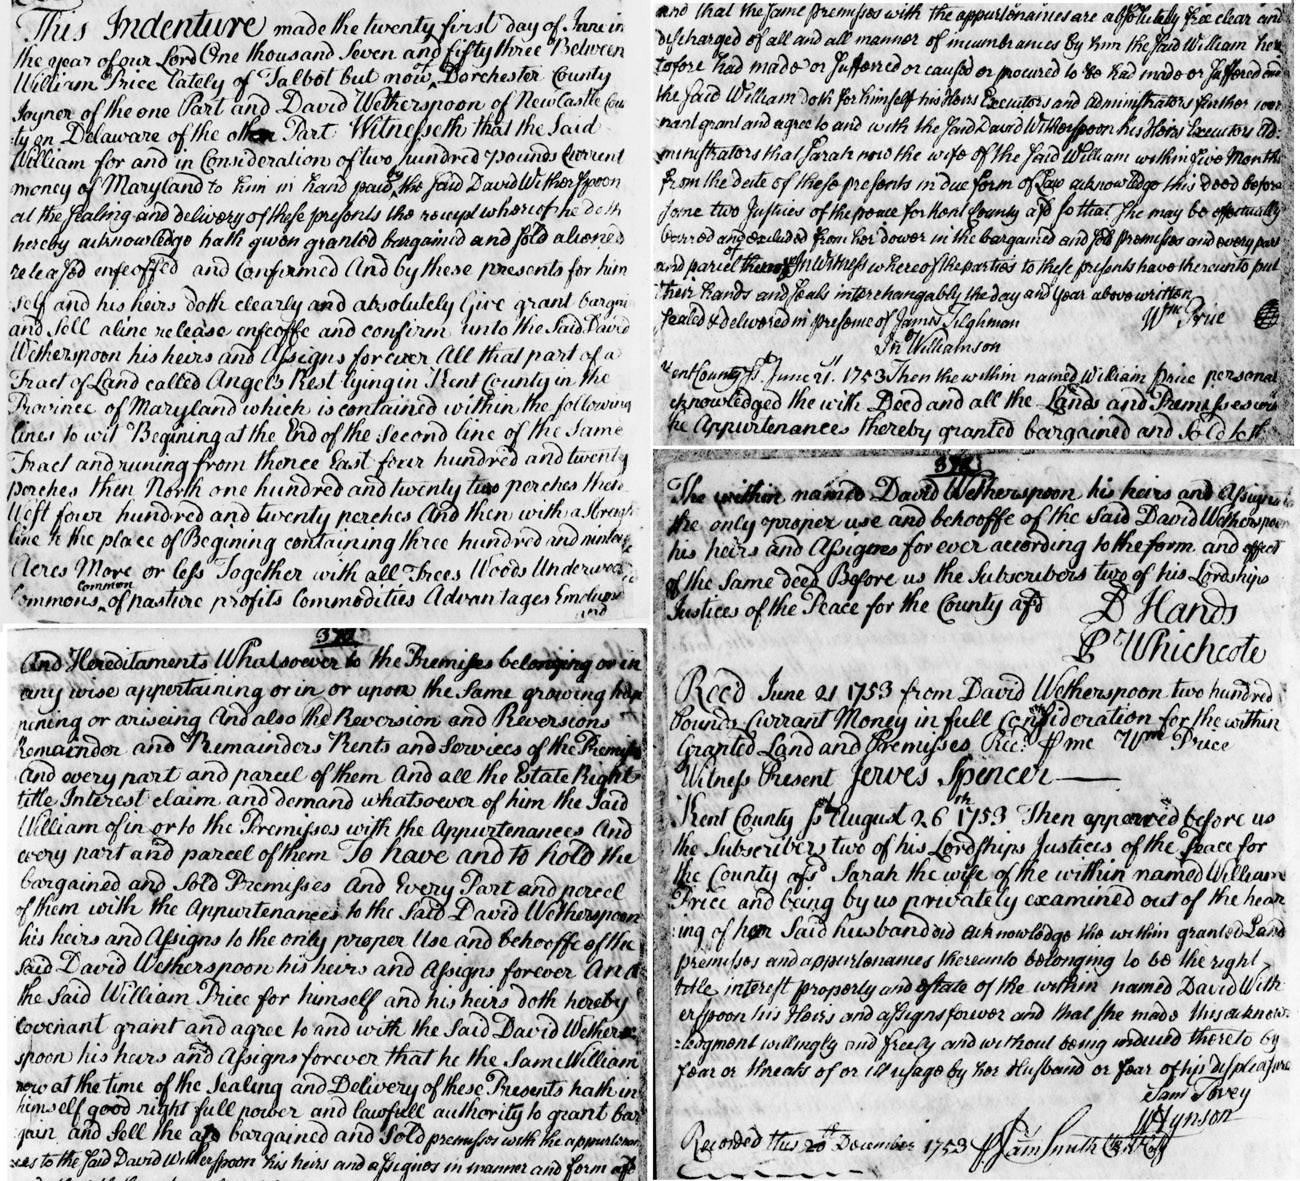 This Indenture made the twenty first day of June in
the year of our Lord One thousand Seven and fifty three Between
William Price lately of Talbot but now of Dorchester County
Joyner of the one Part and David Wetherspoon of New Castle Coun
:ty on Delaware of the other Part Witnesseth that the Said
William for and in Consideration of two hundred pounds Current
money of Maryland to him in hand paid by the said David Witherspoon
at the sealing and delivery of these presents the receipt whereof he doth
hereby acknowledge hath given granted bargained and sold aliened
released enfeoffed and Confirmed And by these presents for him
:self and his heirs doth clearly and absolutely Give grant bargain
and Sell aline release enfeoffe and confirm unto the Said David
Wetherspoon his heirs and Assigns for ever All that part of a
Tract of Land called Angel's Rest lying in Kent County in the
Province of Maryland which is contained within the following
lines to wit Begining at the End of the Second line of the Same
Tract and runing from thence East four hundred and twenty
perches then North one hundred and twenty two perches then
West four hundred and twenty perches And then with a Streight
line to the place of Begining containing three hundred and
Acres More or less Together with all Trees Woods Underwood
Commons Common of pasture profits Commodities Advantages
and
And Hereditaments Whatsoever to the Premisses belonging or in
any wise appertaining or in or upon the Same growing hap
:pening or ariseing And also the Reversion and Reversions
Remainder and Remainders Rents and Services of the Premisses
And every part and parcel of them And all the Estate Right
title Interest claim and demand whatsoever of him the Said
William of in or to the Premisses with the Appurtenances And
every part and parcel of them To have and to hold the
bargained and Sold Premisses And Every Part and percel
of them with the Appurtenances to the Said David Wetherspoon
his heirs and Assigns to the only proper Use and behooffe of the
Said David Wetherspoon his heirs and Assigns forever And
the Said William Price for himself and his heirs doth hereby
Covenant grant and agree to and with the Said David Wethers
spoon his heirs and Assigns forever that he the Same William
now at the time of the Sealing and Delivery of these Presents hath in
himself good right full power and lawfull authority to grant bar
gain and Sell the afd bargained and Sold premisses with the appurtenan
ces to the Said David Witherspoon his heirs and assignes in manner and form afd
and that the same premisses with the appurtenances are absolutely free clear and
discharged of all and all manner of incumbrances by him the said William here
tofore had made or suffered or caused or procured to be had made or suffered and
the said William doth for himself his Heirs Executors and administrators further cove
nant grant and agree to and with the said David Witherspoon his Heirs Executors Ad:
ministrators that Sarah now the wife of the said William within five Months
from the date of these presents in due form of Law acknowledge this deed before
some two Justices of the peace for Kent County afd so that she may be effectually
barred and excluded from her dower in the bargained and sold premisses and every part
and parcel thereof In Witness whereof the parties to these presents have thereunto put
their hands and seals interchangably the day and year above written
Sealed & delivered in presence of James Tilghman Wm Price
Jno Williamson
Kent County ss. June 21. 1753 Then the within named William Price personal
acknowledged the with Deed and all the Lands and Premisses with
the Appurtenances thereby granted bargained and Sold to
The within named David Wetherspoon his heirs and Assigns
the only proper use and behooffe of the Said David Wetherspoon
his heirs and Assignes for ever according to the form and effect
of the Same deed Before us the Subscribers two of his Lordships
Justices of the Peace for the County afd D Hands
P Whichcote
Recd June 21 1753 from David Wetherspoon two hundred
Pounds Currant Money in full Consideration for the within
Granted Land and Premisses Rec: P me Wm Price
Witness Present Jerves Spencer
Kent County sst August 26th 1753 Then appeared before us
the Subscribers two of his Lordships Justices of the Peace for
the County afsd Sarah the wife of the within named William
Price and being by us privately examined out of the hear
:ing of her Said husband did acknowledge the within granted Land
premisses and appurtenances thereunto belonging to be the right
title interest property and estate of the within named David With
erspoon his Heirs and assigns forever and that she made this acknow:
:ledgment willingly and freely and without being induced thereto by
fear or threats of or ill usage by her Husband or fear of his displeasure
Sam Tovey
W Hynson
Recorded this 20th December 1753 P Jam Smith